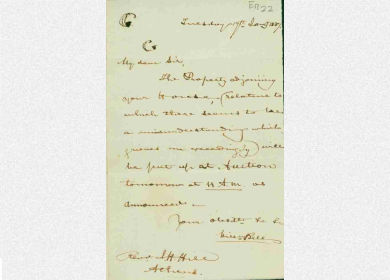 22
Tuesday
My dear Sir,
The Property adjoining
your House, (relative to
which there seems to be
a misunderstanding which
grieves me exceedingly) will
be put up at Auction
tomorrow at 11 A.M. as
announced
Your obedt
Revd J H Hill
Athens.